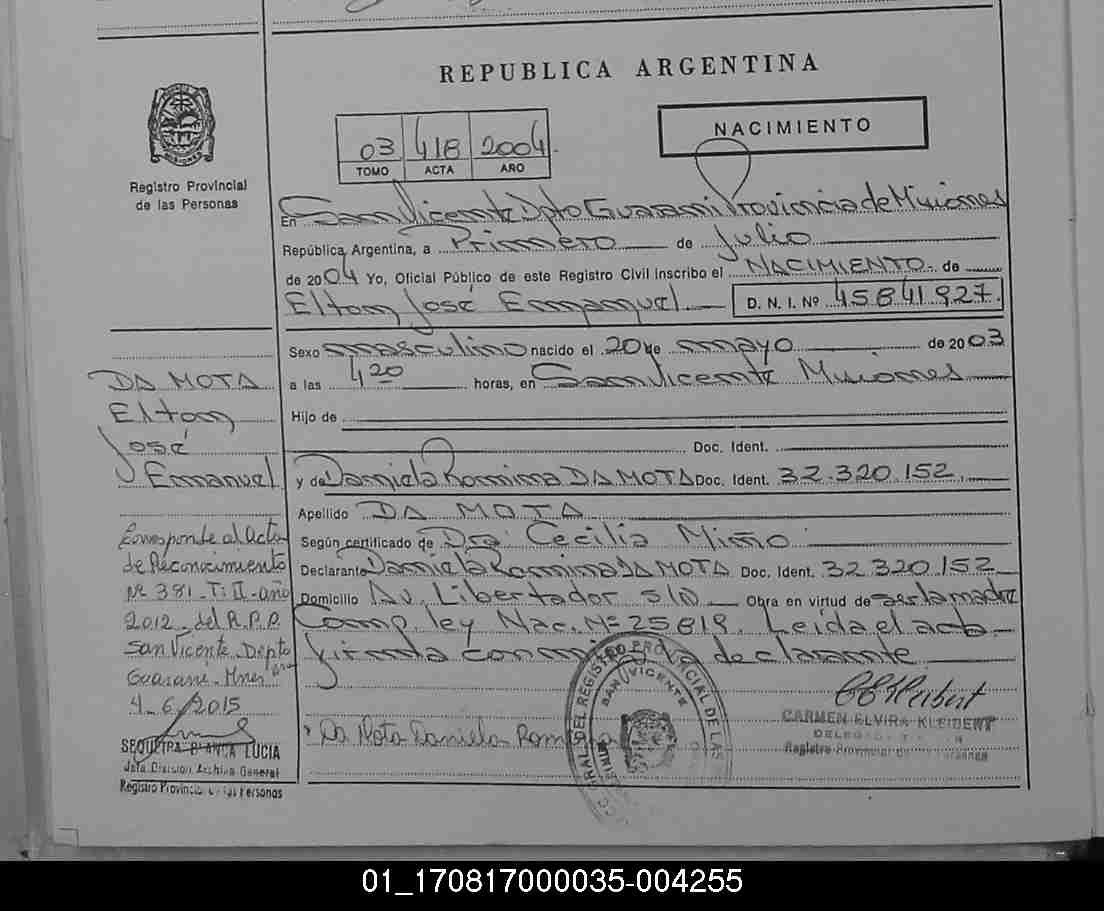 REPUBLICA ARGENTINA
NACIMIENTO
03 418 2004
TOMO ACTA AÑO
Registro Provincial
de las Personas
En San Vicente Dpto Guaraní Provincia de Misiones
República Argentina, a Primero de Julio
de 2004 Yo, Oficial Público de este Registro Civil inscribo el NACIMIENTO de
Elton José Emanuel D. N. I. Nº 45841927.
Sexo masculino nacido el 20 de mayo de 2003
a las 4 20 horas, en San Vicente Misiones
Hijo de
Doc. Ident.
y de Daniela Romina DA MOTA Doc. Ident. 32.320.152.
Apellido DA MOTA
Según certificado de Dra. Cecilia Miño
Declarante Daniela Romina DA MOTA Doc. Ident. 32 320 152
Domicilio Av. Libertador S/N Obra en virtud de ser la madre
Comp. ley Nac. Nº 25819. Leida el acta
firma conmigo la declarante
Da Mota Daniela Romina
CARMEN ELVIRA KLEIBERT
DELEGADA TITULAR
Registro Provincial de las Personas
REGISTRO PROVINCIAL DE LAS
SAN VICENTE
DA MOTA
Elton
José
Emanuel
Corresponde al Acta
de Reconocimiento
Nº 381 - T: II - año
2012 - del R.P.P.
San Vicente - Dpto
Guaraní - Mnes
4-6-2015
SEQUEIRA BLANCA LUCIA
Jefa Division Archivo General
Registro Provincial de las Personas
01_170817000035-004255